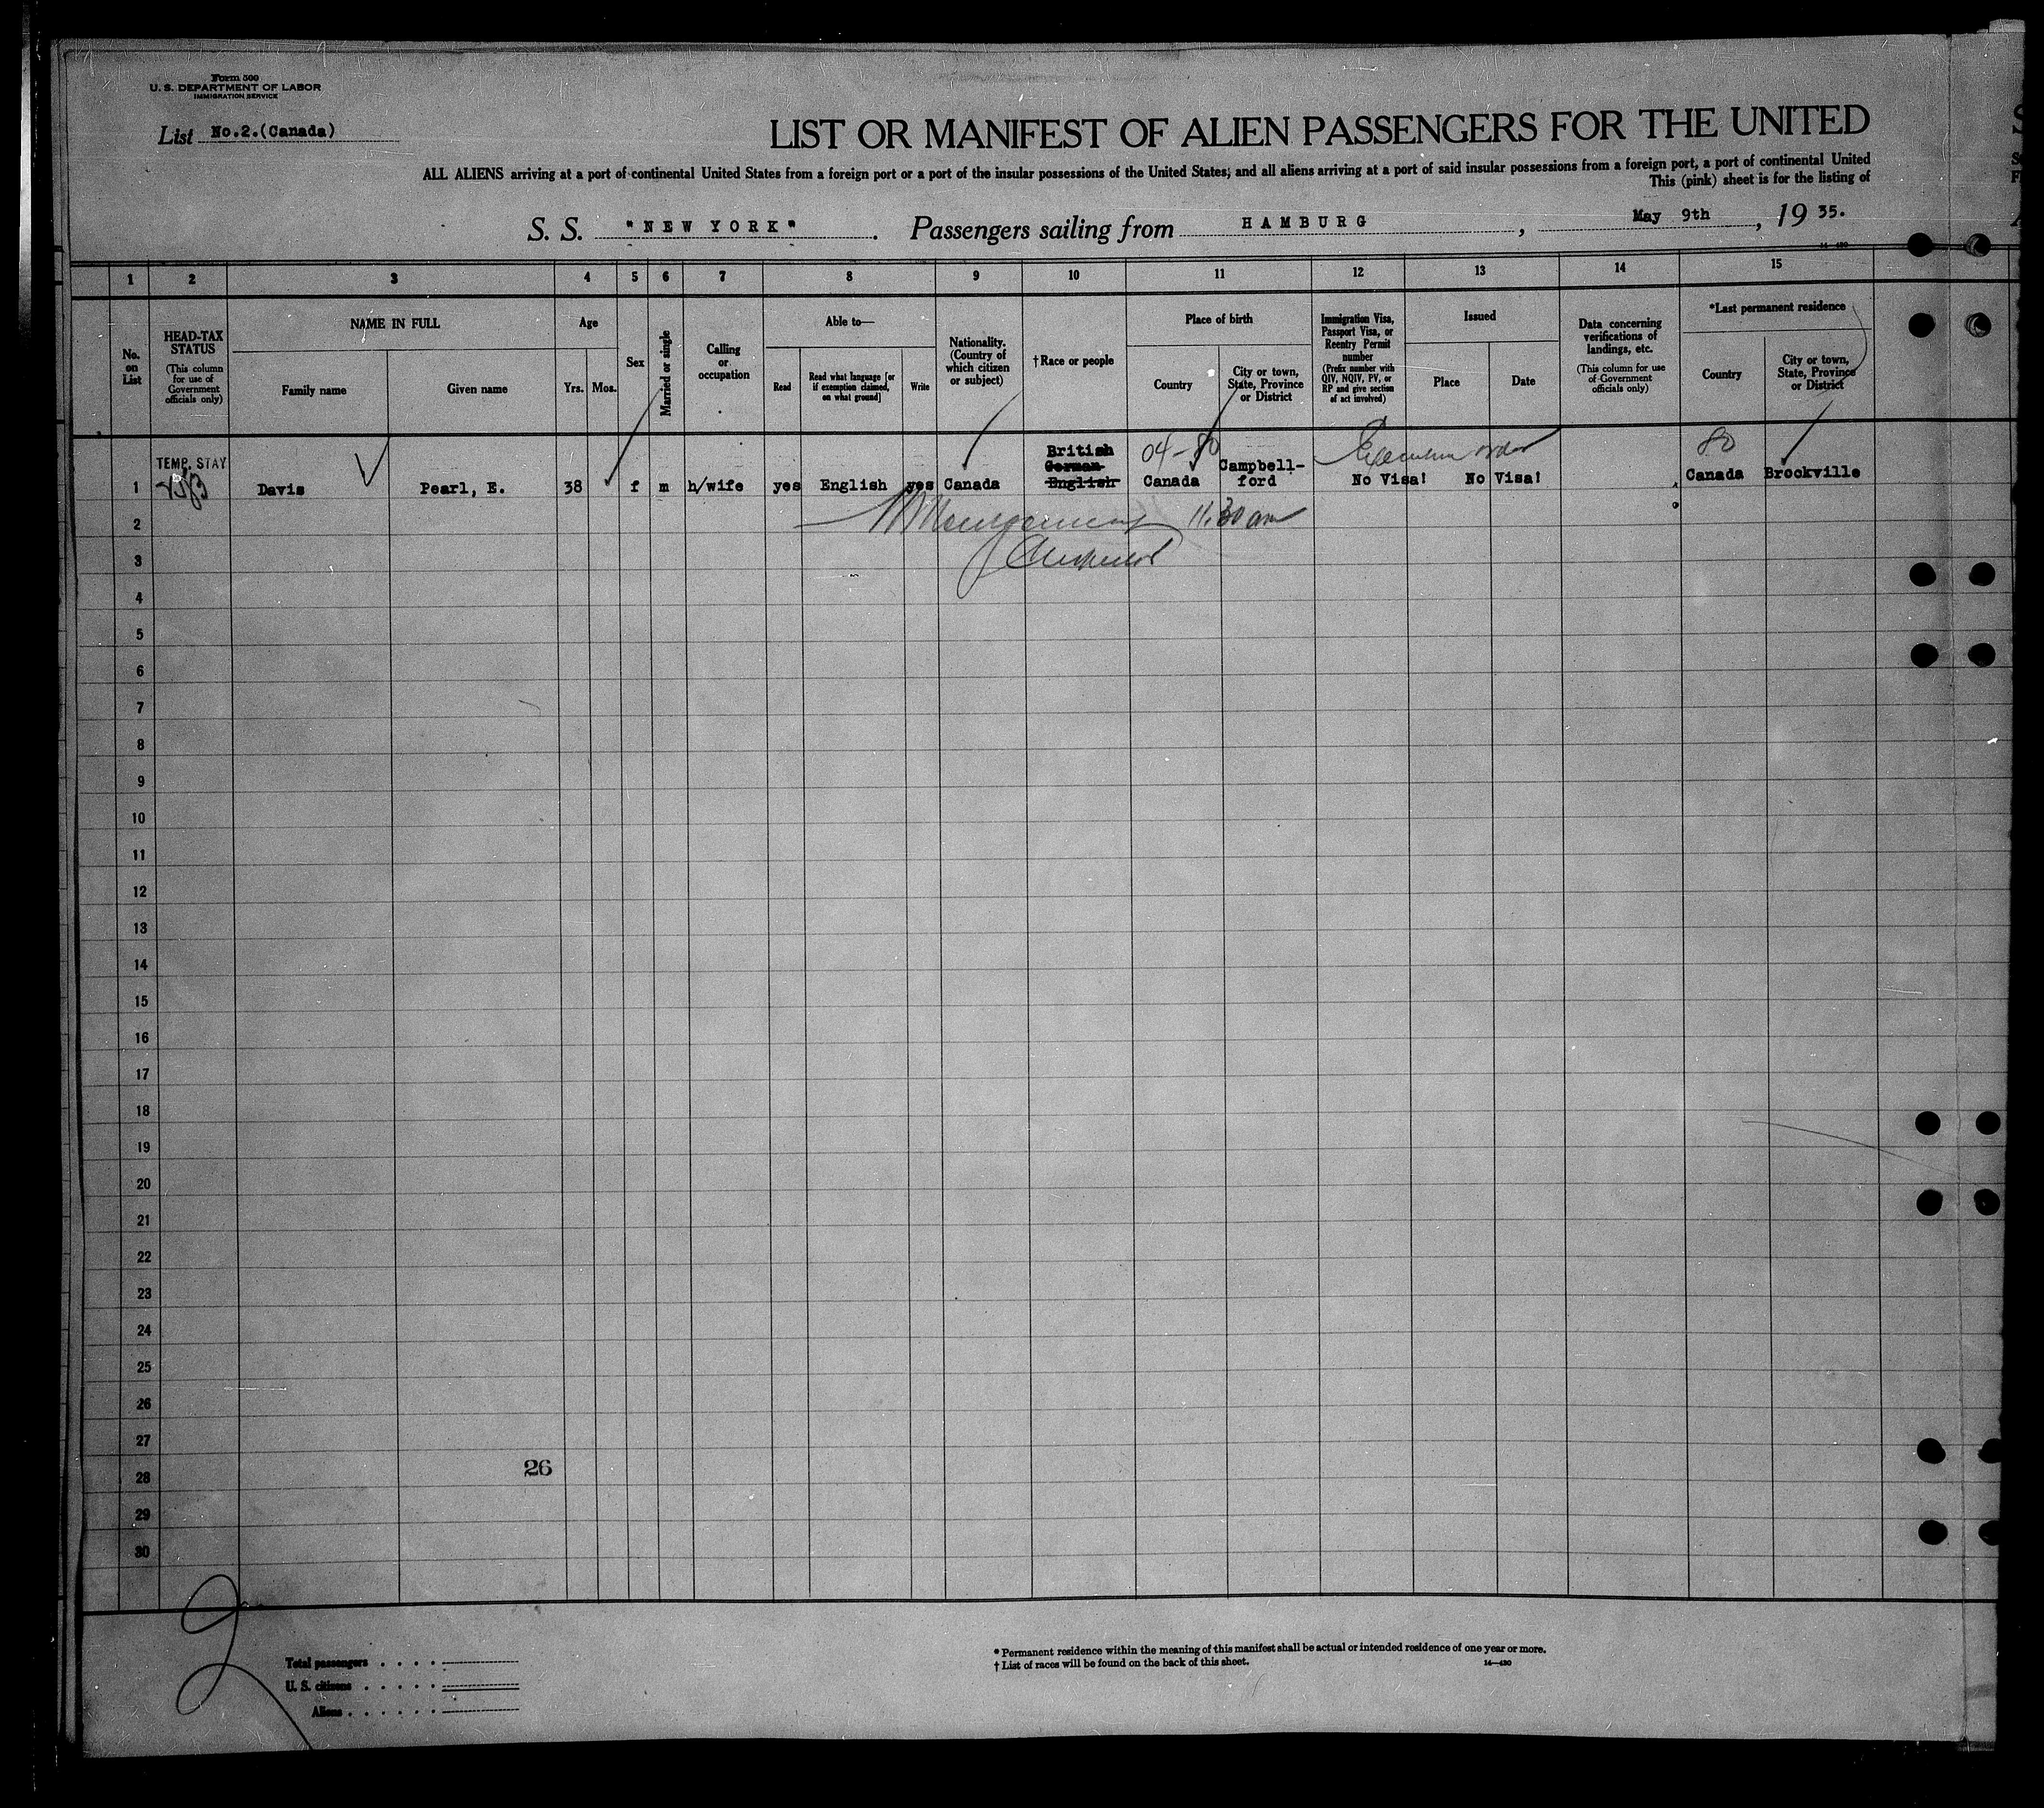 Form 500
U. S. DEPARTMENT OF LABOR
IMMIGRATION SERVICE
List No.2.(Canada)
LIST OR MANIFEST OF ALIEN PASSENGERS FOR THE UNITED
ALL ALIENS arriving at a port of continental United States from a foreign port or a port of the insular possessions of the United States; and all aliens arriving at a port of said insular possessions from a foreign port, a port of continental United
This (pink) sheet is for the listing of
S. S. "NEW YORK" . Passengers sailing from HAMBURG , May 9th , 19 35.
14—430
1 2 3 4 5 6 7 8 9 10 11 12 13 14 15
No. on List
HEAD-TAX STATUS
(This column for use of Government officials only)
NAME IN FULL
Family name
Given name
Age
Yrs.
Mos.
Sex
Married or single
Calling or occupation
Able to—
Read
Read what language [or if exemption claimed, on what ground]
Write
Nationality. (Country of which citizen or subject)
†Race or people
Place of birth
Country
City or town, State, Province or District
Immigration Visa, Passport Visa, or Reentry Permit number
(Prefix number with QIV, NQIV, PV, or RP and give section of act involved)
Issued
Place
Date
Data concerning verifications of landings, etc.
(This column for use of Government officials only)
*Last permanent residence
Country
City or town, State, Province or District
TEMP. STAY British 04-80 Executive order 80
German Campbell-
1 Davis Pearl, E. 38 f m h/wife yes English yes Canada English Canada ford No Visa! No Visa! Canada Brookville
2 11.30 am
3
4
5
6
7
8
9
10
11
12
13
14
15
16
17
18
19
20
21
22
23
24
25
26
27
28 26
29
30
Total passengers . . . .
U. S. citizens . . . . .
Aliens . . . . . .
* Permanent residence within the meaning of this manifest shall be actual or intended residence of one year or more.
† List of races will be found on the back of this sheet. 14—430